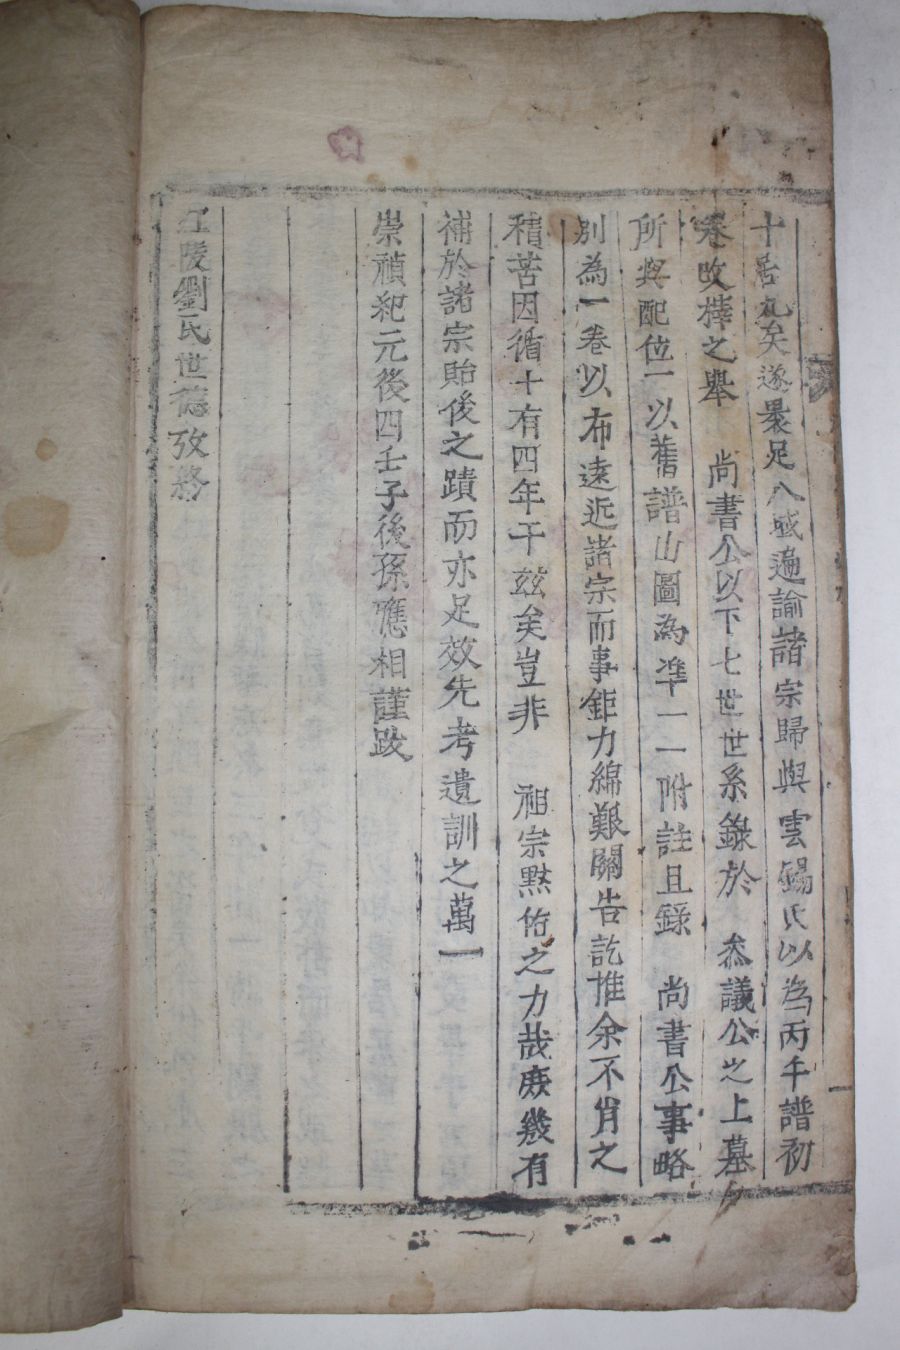 十居九矣遂裹足八域遍諭諸宗歸與雲錫氏以為丙午譜初
卷改梓之擧 尚書公以下七世世系錄於 叅議公之上墓
所與配位一以舊譜山圖為準一一附註且錄 尚書公事略
別為一卷以布遠近諸宗而事鉅力綿艱關告訖惟余不肖之
積苦因循十有四年于玆矣豈非 祖宗黙佑之力哉庶幾有
補於諸宗貽後之蹟而亦足效先考遺訓之萬一
崇禎紀元後四壬子後孫應相謹跋
江陵劉氏世德攷終